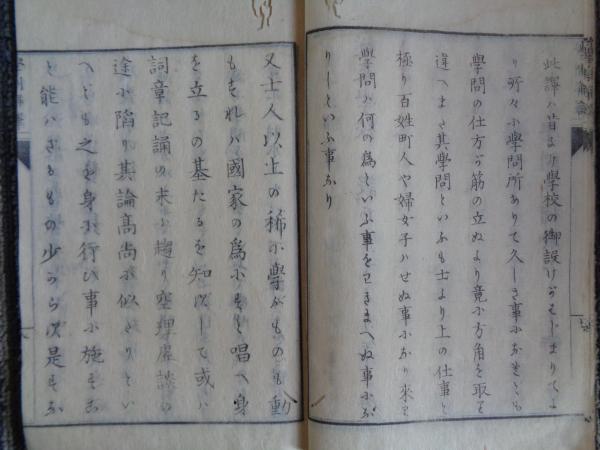 此譯ハ昔より學校の御設けがはじまりてよ
り所々小學問所ありて久しき事小なれども
學問の仕方が筋の立ぬより竟小方角を取
違へまた其學問といふも士より上の仕事と
極り百姓町人や婦女子ハせぬ事小なり來り
學問ハ何の為といふ事をわきまへぬ事小な
りしといふ事なり
又士人以上の稀小學ぶものも動
もすれハ國家の為小すと唱へ身
を立るの基たるを知ずして或ハ
詞章記誦の末小趨り空理虚談の
途小陥り其論高尚小似たりとい
へども之を身小行ひ事小施すこ
と能ハざるもの少からず是すな